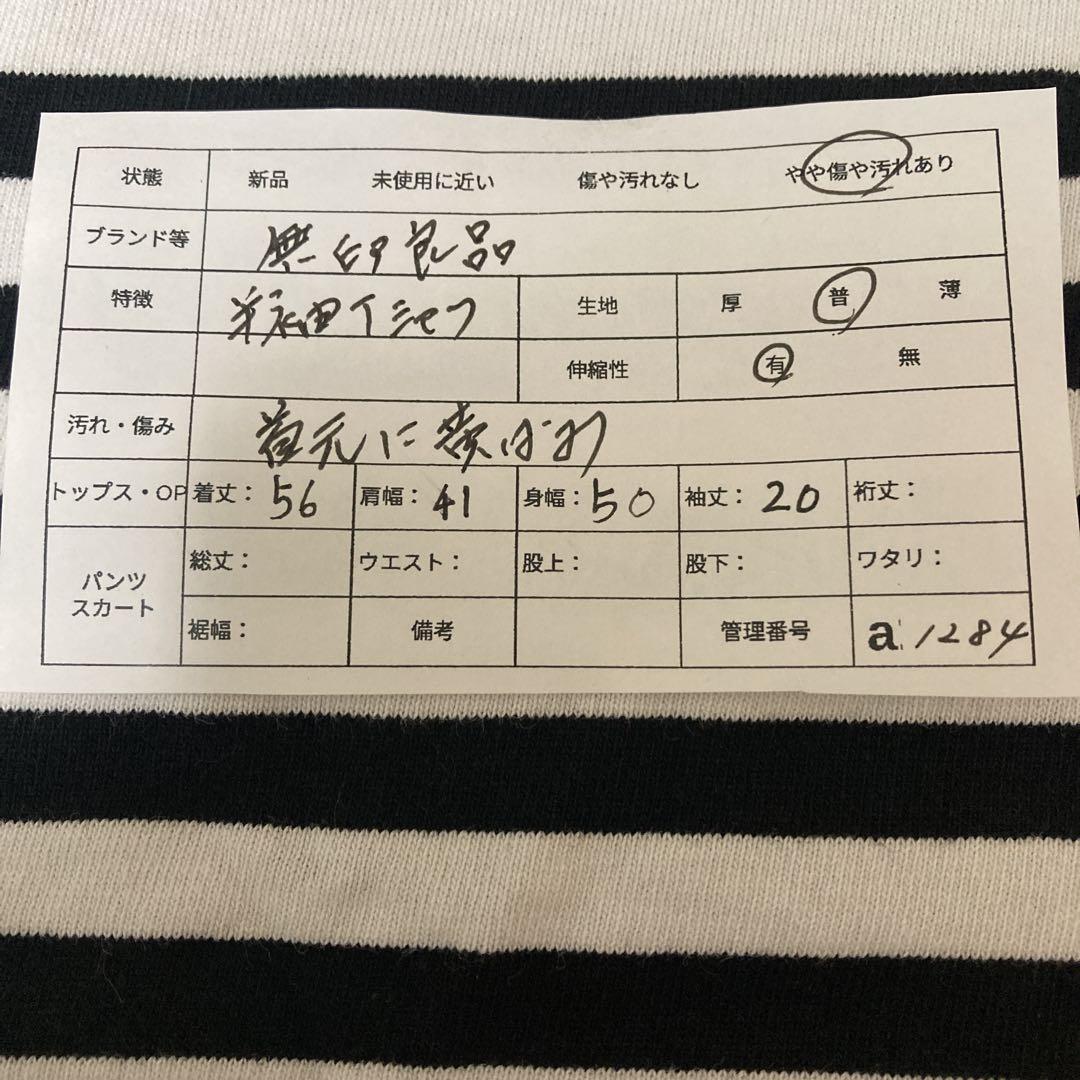 状態 新品 未使用に近い 傷や汚れなし やや傷や汚れあり
ブランド等 無印良品
特徴 半袖Tシャツ 生地 厚 普 薄
伸縮性 有 無
汚れ・傷み 首元に黄ばみ
トップス・OP 着丈: 56 肩幅: 41 身幅: 50 袖丈: 20 裄丈:
パンツ スカート 総丈: ウエスト: 股上: 股下: ワタリ:
裾幅: 備考 管理番号 a 1284